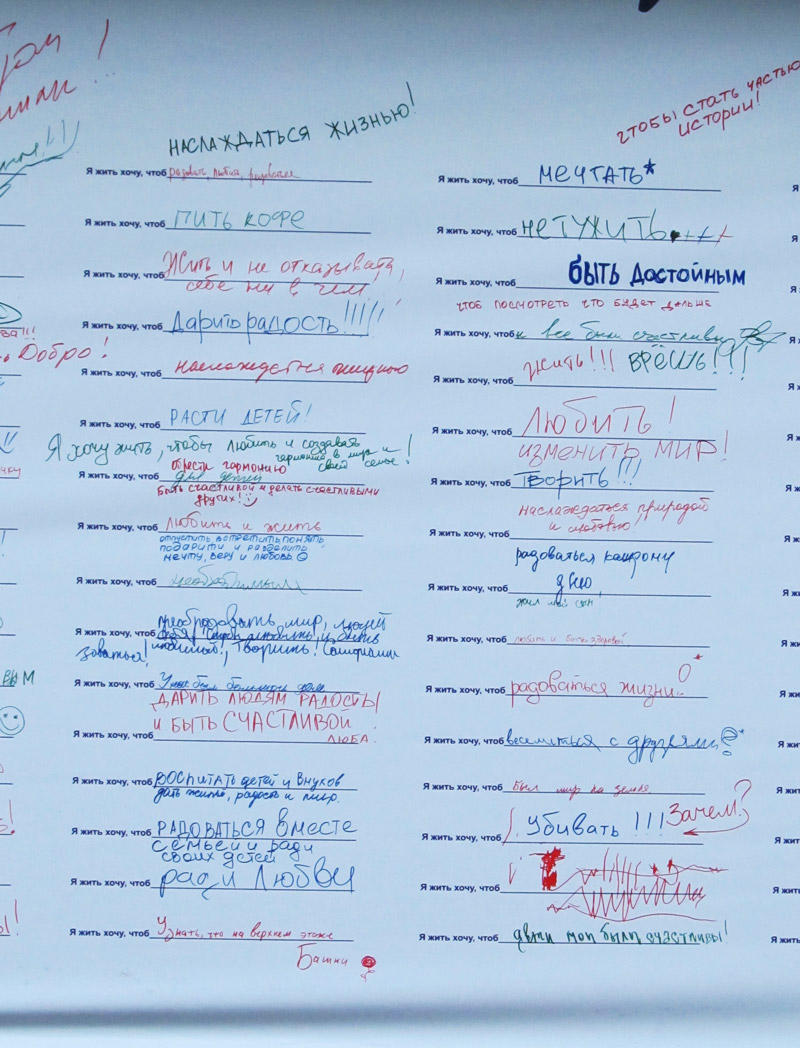 НАСЛАЖДАТЬСЯ ЖИЗНЬЮ!
Я жить хочу, чтоб
Я жить хочу, чтоб ПИТЬ КОФЕ
Я жить хочу, чтоб Жить и не отказывать
себе ни в чем
Я жить хочу, чтоб Дарить радость!!!!!
Я жить хочу, чтоб
Я жить хочу, чтоб РАСТИ ДЕТЕЙ!
Я хочу жить, чтобы любить и создавать
гармонию в мире и
своей семье!
обрести гармонию
Я жить хочу, чтоб для детей
Быть счастливой и делать счастливыми
других!
Я жить хочу, чтоб любить и жить
отпустить встретить понять
подарить и разделить
мечту, веру и любовь
Я жить хочу, чтоб
Я жить хочу, чтоб преобразовать мир, людей
любимой!, Творить!
Я жить хочу, чтоб
ДАРИТЬ ЛЮДЯМ РАДОСТЬ!
и БЫТЬ СЧАСТЛИВОЙ
Я жить хочу, чтоб ЛЮБА.
Я жить хочу, чтоб ВОСПИТАТЬ детей и Внуков
радость и мир.
Я жить хочу, чтоб РАДОВАТЬСЯ Вместе
с семьей и ради
своих детей
Я жить хочу, чтоб ради Любви
Я жить хочу, чтоб Узнать, что на верхнем этаже
Башни
чтобы стать частью
истории!
Я жить хочу, чтоб мечтать*
Я жить хочу, чтоб не ТУЖИТЬ
Я жить хочу, чтоб БЫТЬ Достойным
чтоб посмотреть что будет дальше
Я жить хочу, чтоб и все были счастливы
Я жить хочу, чтоб жить!!! ВРЁШЬ!!!
Я жить хочу, чтоб Любить!
ИЗМЕНИТЬ МИР!
Я жить хочу, чтоб Творить!!!
наслаждаться природой
Я жить хочу, чтоб и любовью!
радоваться каждому
Я жить хочу, чтоб дню
жил мой сын,
Я жить хочу, чтоб любить и быть здоровой
Я жить хочу, чтоб радоваться жизни..
Я жить хочу, чтоб веселиться с друзьями
Я жить хочу, чтоб был мир на земле
Я жить хочу, чтоб Убивать !!! Зачем?
Я жить хочу, чтоб
Я жить хочу, чтоб дети мои были счастливы!
Добро!